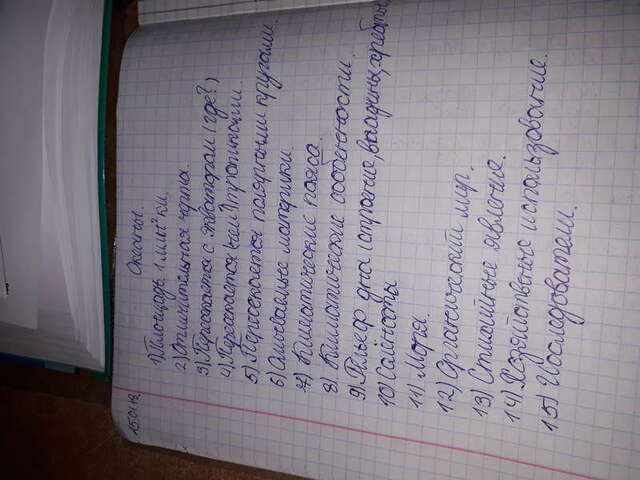 Океаны.
1) Площадь 1.млн²км.
2) Отличительная черта.
3) Пересекается с экватором (где?)
4) Пересекается (ней) тропиками.
5) Пересекается полярными кругами.
6) Омываемые материки.
7) Климатические пояса.
8) Климатические особенности.
9) Рельеф дна (строение, впадины, хребты
10) Солёность
11) Моря.
12) Органический мир.
13) Стихийные явление.
14) Хозяйственые использование.
15) Исследователи.